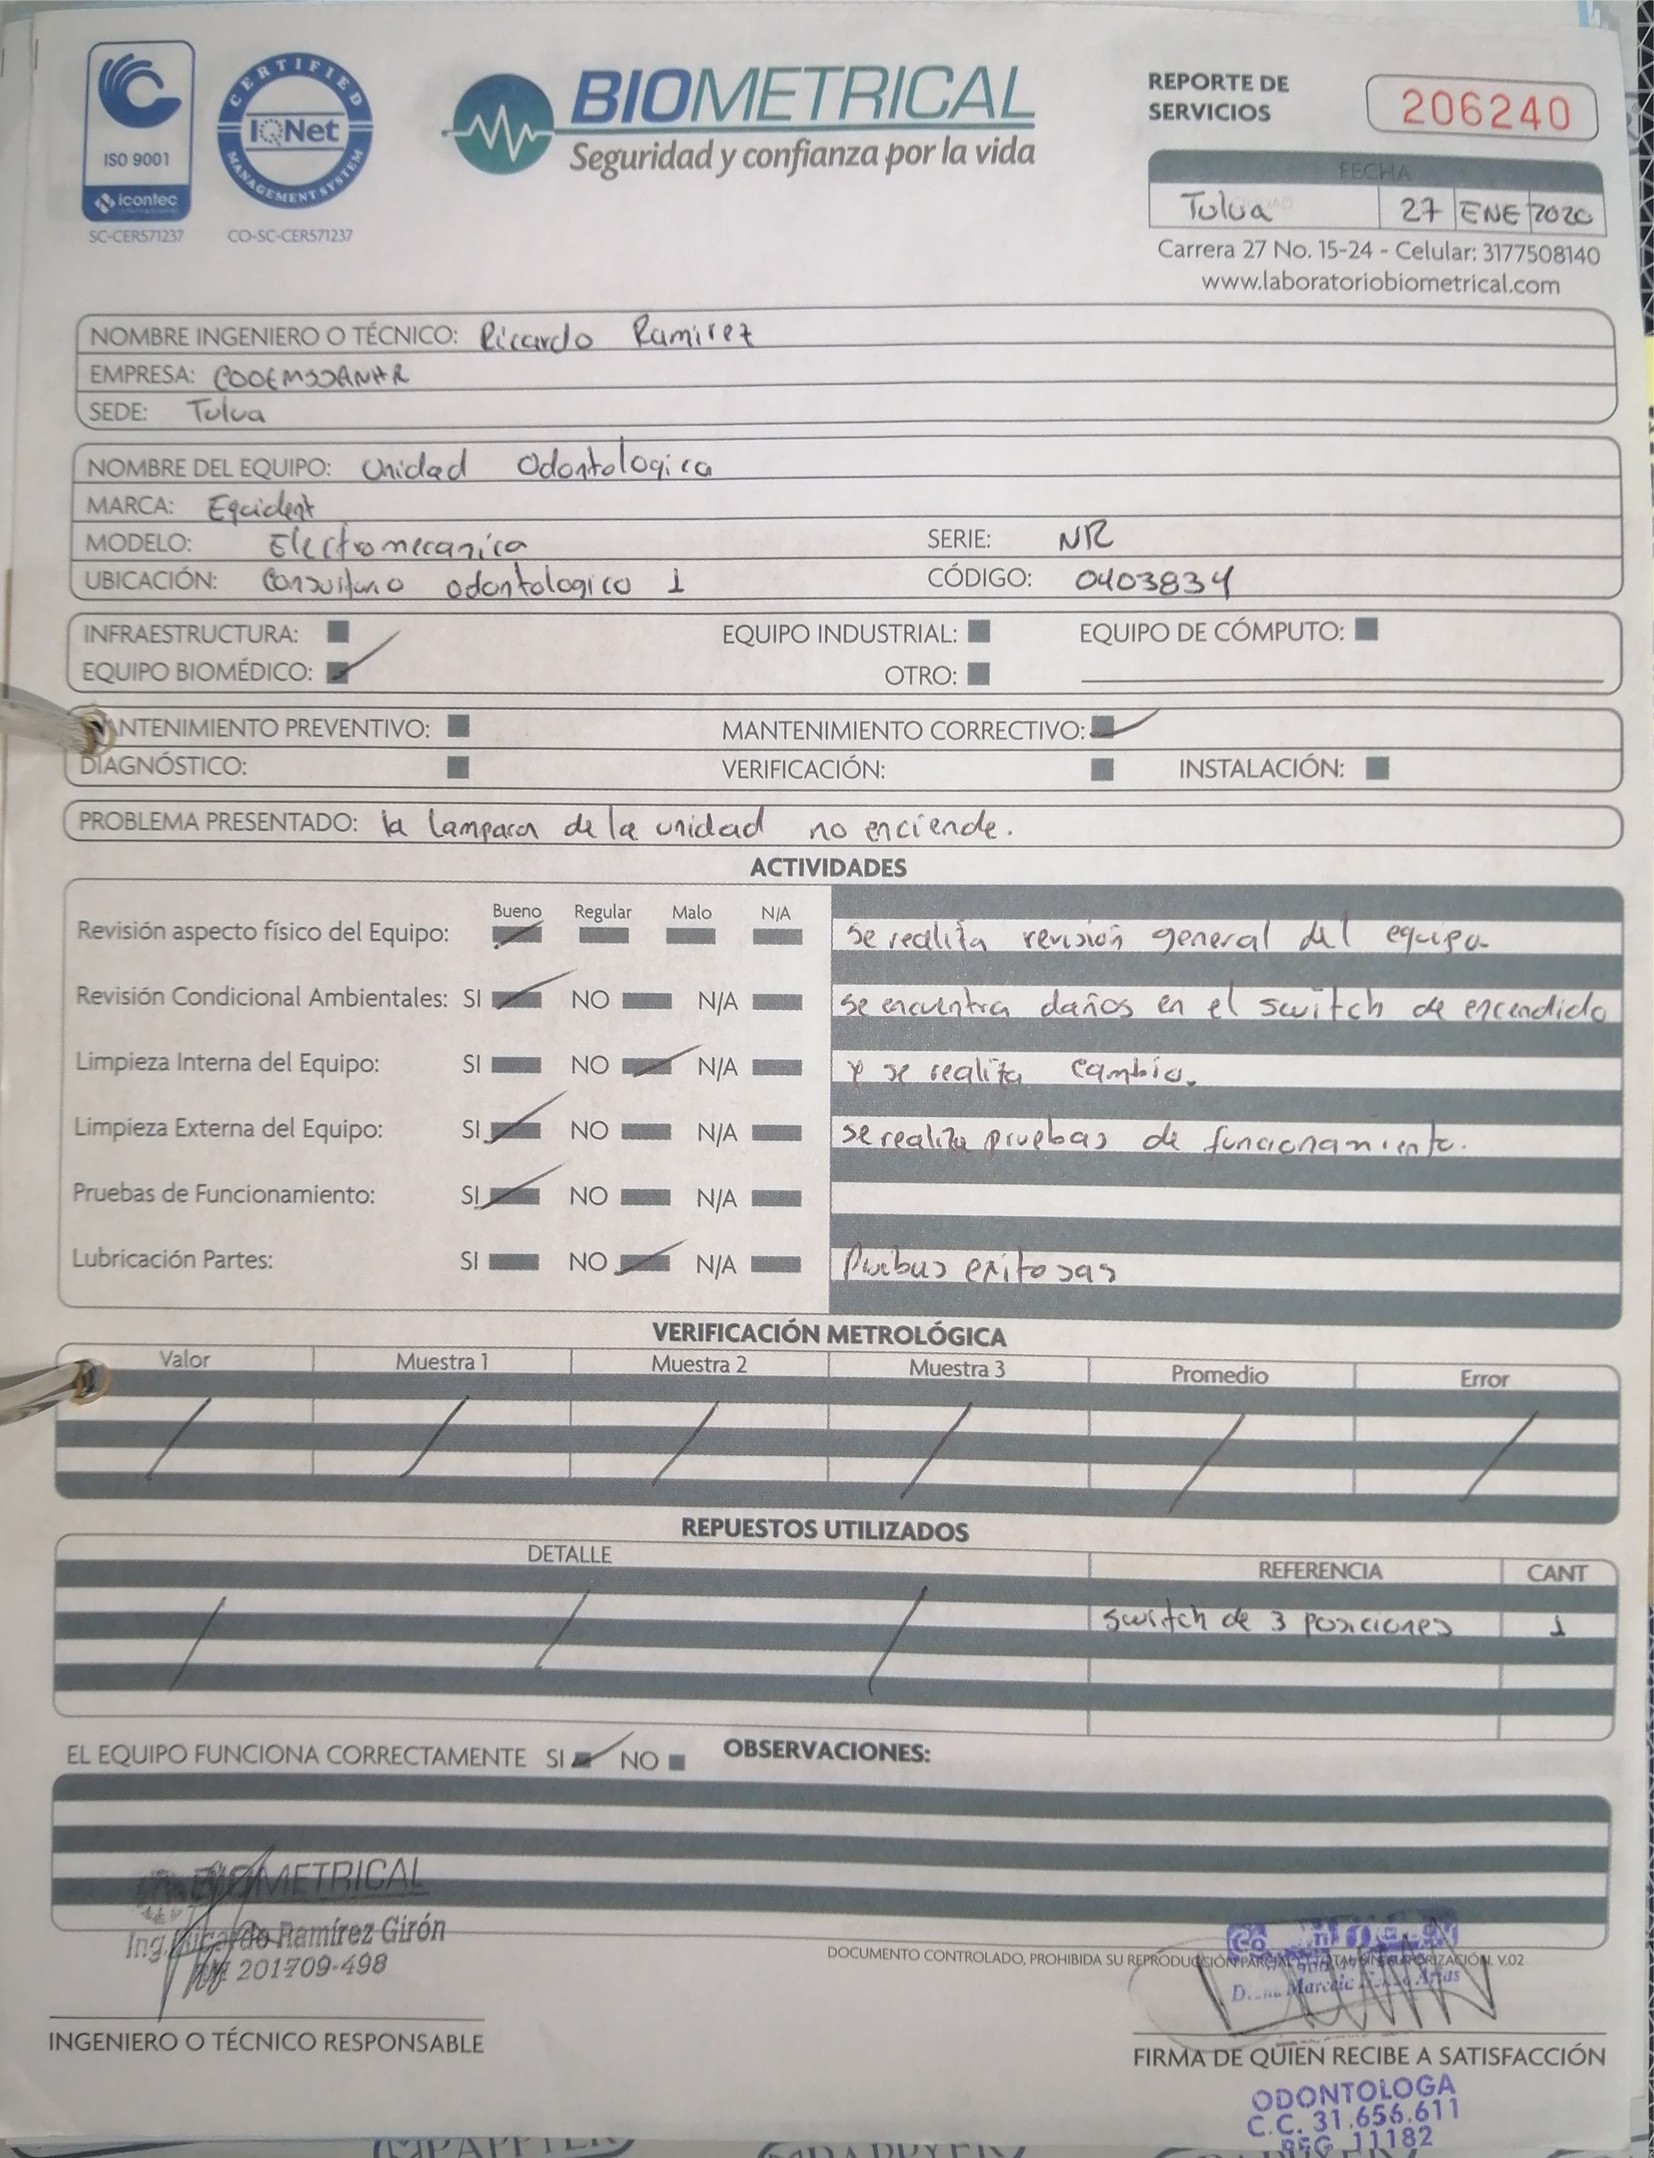 ISO 9001
icontec
SC-CER571237
CERTIFIED
IQNet
MANAGEMENT SYSTEM
CO-SC-CER571237
BIOMETRICAL
Seguridad y confianza por la vida
REPORTE DE
SERVICIOS
206240
FECHA
Tulua 27 ENE 2020
Carrera 27 No. 15-24 - Celular: 3177508140
www.laboratoriobiometrical.com
NOMBRE INGENIERO O TÉCNICO: Ricardo Ramirez
EMPRESA: COOEMSSANAR
SEDE: Tulua
NOMBRE DEL EQUIPO: Unidad Odontologica
MARCA: Equident
MODELO: Electromecanica SERIE: NR
UBICACIÓN: Consultorio odontologico 1 CÓDIGO: 0403834
INFRAESTRUCTURA: EQUIPO INDUSTRIAL: EQUIPO DE CÓMPUTO:
EQUIPO BIOMÉDICO: OTRO:
ANTENIMIENTO PREVENTIVO: MANTENIMIENTO CORRECTIVO:
DIAGNÓSTICO: VERIFICACIÓN: INSTALACIÓN:
PROBLEMA PRESENTADO: la lampara de la unidad no enciende.
ACTIVIDADES
Bueno Regular Malo N/A
Revisión aspecto físico del Equipo: Se realiza revision general del equipo
Revisión Condicional Ambientales: SI NO N/A se encuentra daños en el switch de encendido
Limpieza Interna del Equipo: SI NO N/A y se realiza cambio.
Limpieza Externa del Equipo: SI NO N/A se realiza pruebas de funcionamiento.
Pruebas de Funcionamiento: SI NO N/A
Lubricación Partes: SI NO N/A Pruebas exitosas
VERIFICACIÓN METROLÓGICA
Valor Muestra 1 Muestra 2 Muestra 3 Promedio Error
REPUESTOS UTILIZADOS
DETALLE REFERENCIA CANT
switch de 3 posiciones 1
EL EQUIPO FUNCIONA CORRECTAMENTE SI NO OBSERVACIONES:
BIOMETRICAL
Ing. Ricardo Ramírez Girón
201709-498
DOCUMENTO CONTROLADO, PROHIBIDA SU REPRODUCCIÓN PARCIAL O TOTAL SIN AUTORIZACIÓN. V.02
Arias
INGENIERO O TÉCNICO RESPONSABLE
FIRMA DE QUIEN RECIBE A SATISFACCIÓN
ODONTOLOGA
C.C. 31.656.611
REG 11182